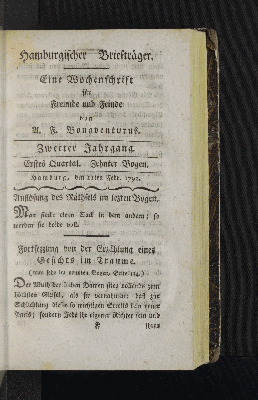 Hamburgischer Briefträger.
Eine Wochenschrift
für
Freunde und Feinde
von
A. F. Bonaventurus.
Zweiter Jahrgang
Erstes Quartal. Zehnter Bogen.
Hamburg, den 11ten Febr.
Auflösung des Räthsels im letzten Bogen.
Man stecke einen Sack in den andern; so
werden sie beide voll.
Fortsetzung von der Erzählung eines
Gesichts im Traume.
(man sehe den neunten Bogen, Seite 129.)
Der Muth der lieben Herren stieg vollends zum
höchsten Gipfel, als sie vernahmen daß zur
Schlichtung dieses so wichtigen Streits kein
Kreis; sondern Jeder ihr eigener Richter sein und
K ihnen